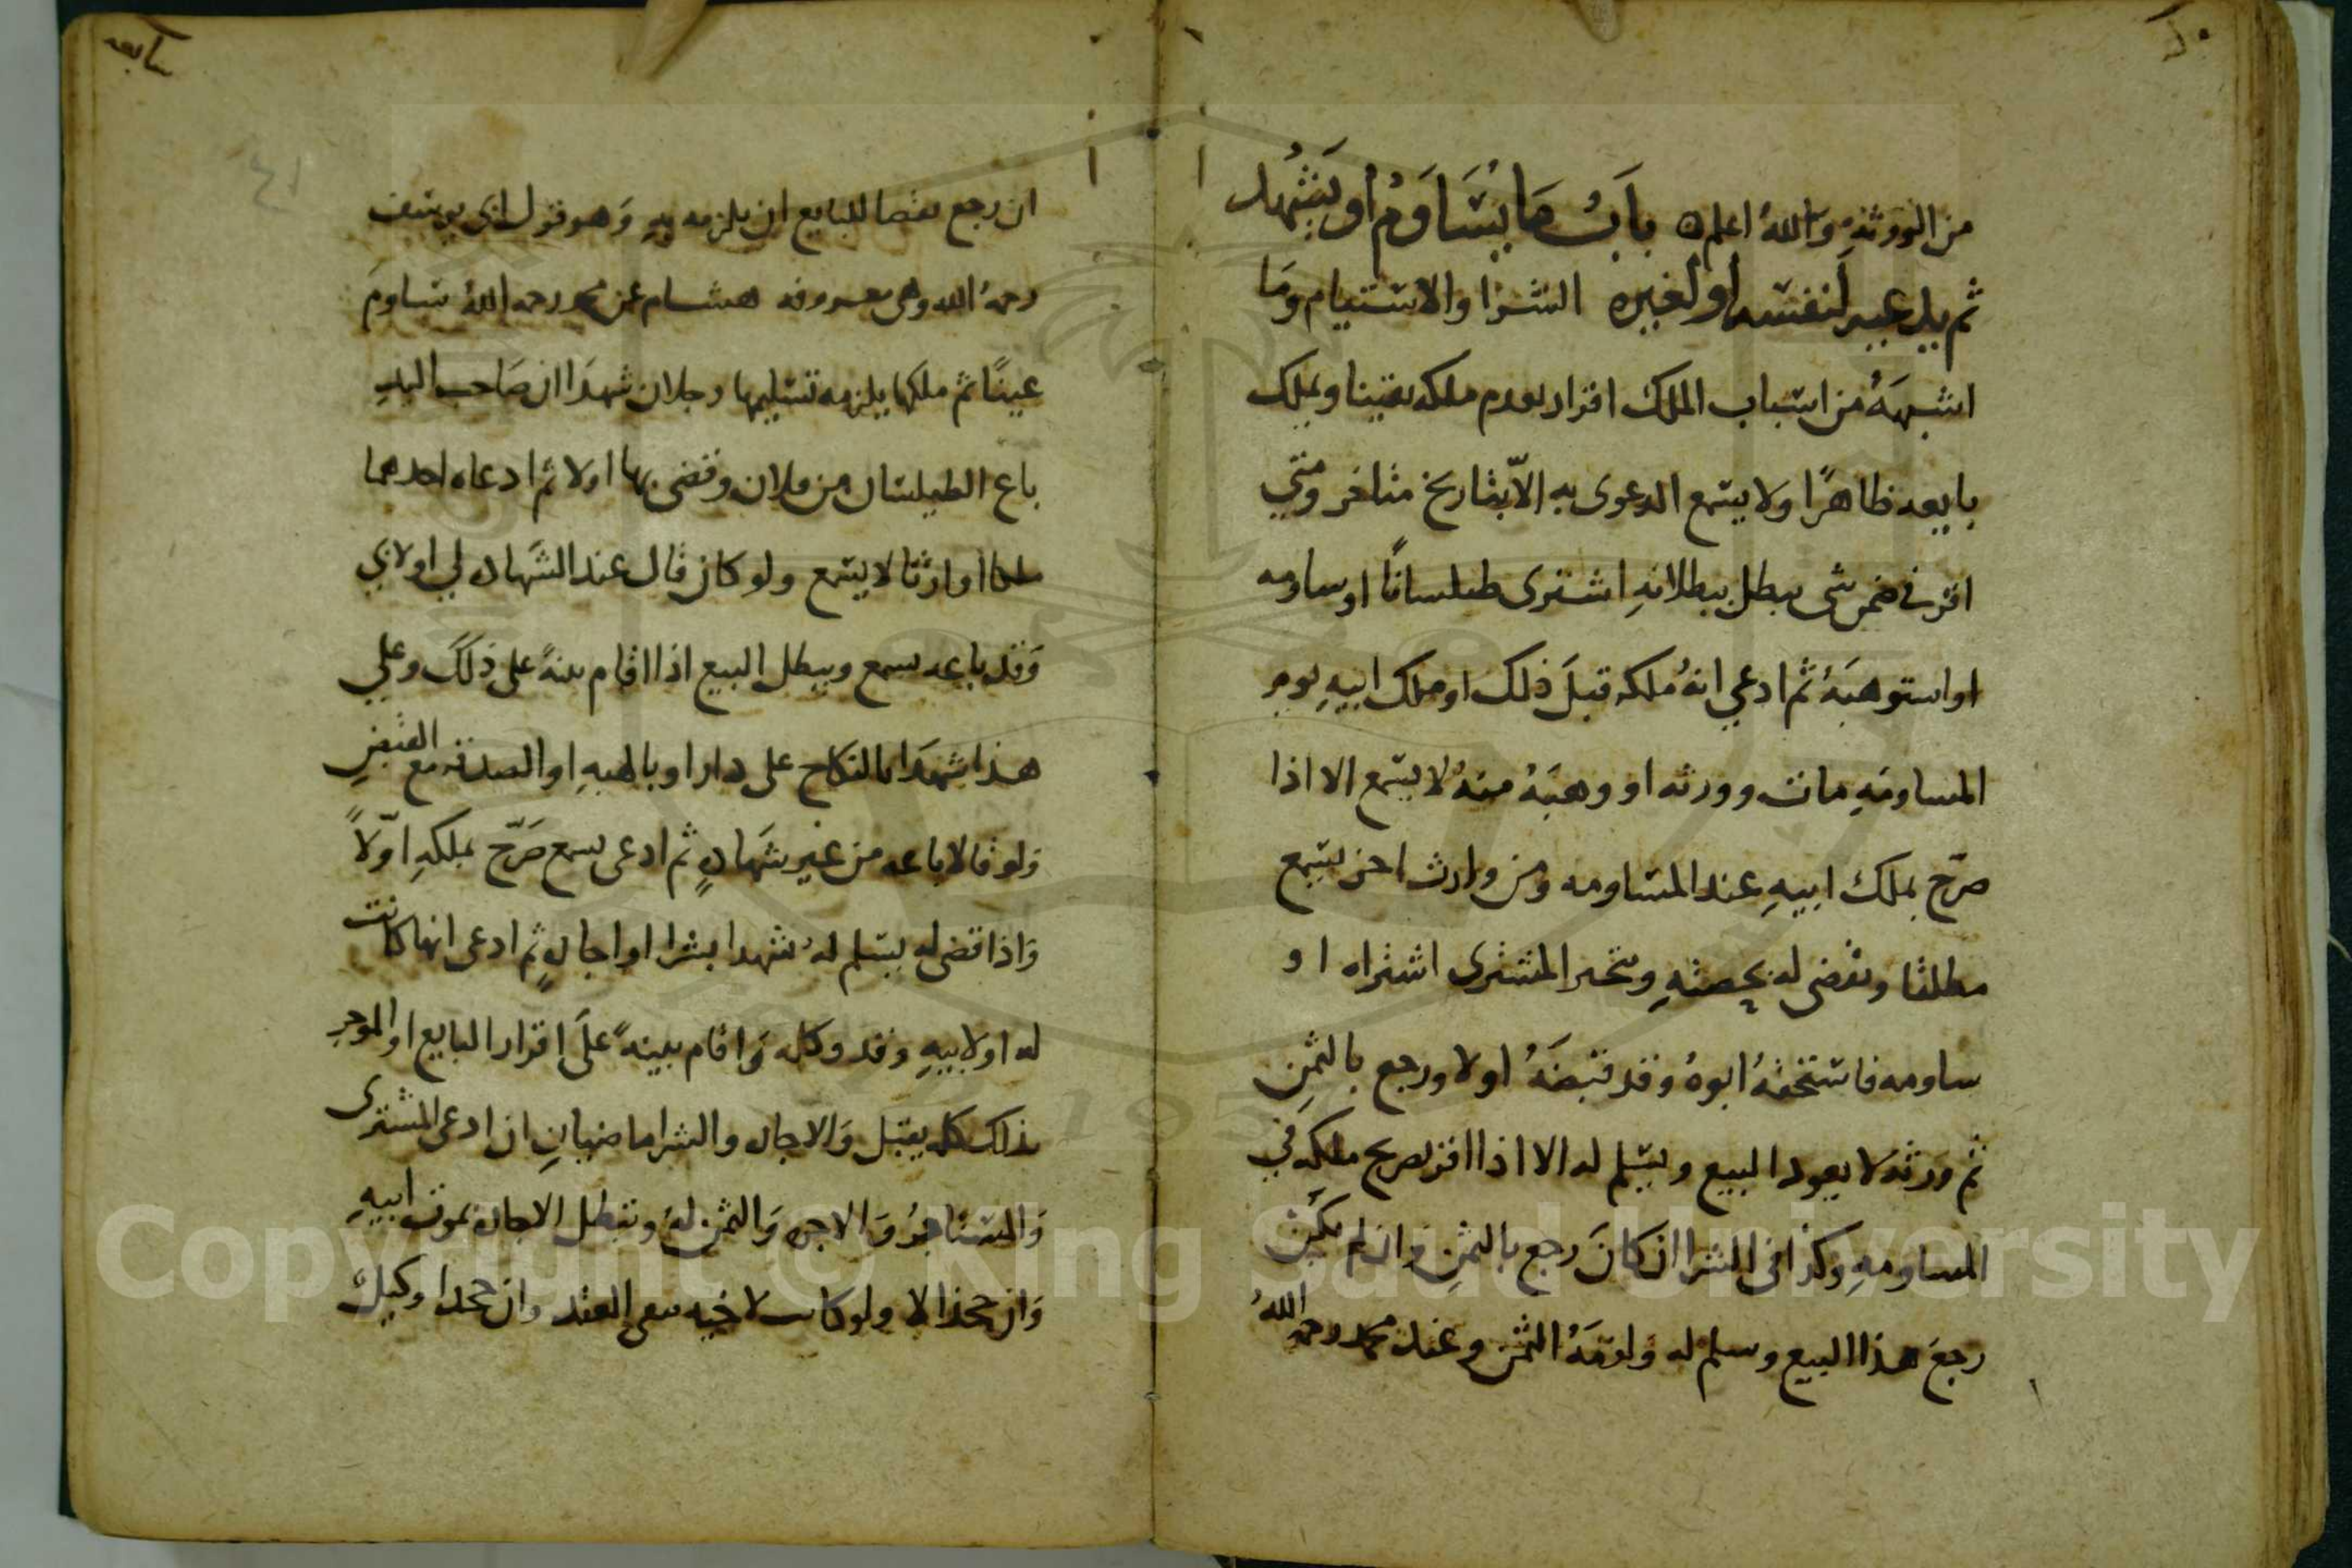 من الورثة والله اعلم باب ما يساوم او يشهد
ثم يدعيه لنفسه او لغيره الشرا والاستيام وما
اشبهه من اسباب الملك اقرار بعدم ملكه يقينا ويملك
بايعه ظاهرا ولا يسمع الدعوى به الا بتاريخ متاخر ومتي
اقر في ضمن شى يبطل ببطلانه اشترى طيلسانا او ساومه
او استوهبه ثم ادعي انه ملكه قبل ذلك او ملك ابيه يوم
المساومه مات وورثه او وهبه منه لا يسمع الا اذا
صرح بملك ابيه عند المساومه ومن وارث اخر يسمع
مطلقا ويقضى له بحصته ويتخير المشترى اشتراه او
ساومه فاستحقه ابوه وقد قبضه اولا ورجع بالثمن
ثم ورثه لا يعود البيع ويسلم له الا اذا اقر بصريح ملكه في
المساومه وكذا في الشرا ان كان رجع بالثمن وان لم يكن
رجع هذا البيع وسلم له ولزمه الثمن وعند محمد رحمه الله
سابعه
ان رجع بقضا للبايع ان يلزمه به وهو قول ابي يوسف
رحمه الله وهى معروفه هشام عن محمد رحمه الله ساوم
عينا ثم ملكها يلزمه تسليمها رجلان شهدا ان صاحب اليد
باع الطيلسان من فلان وقضى بها اولا ثم ادعاه احدهما
ملكا او ارثا لا يسمع ولو كان قال عند الشهاده لي او لابي
وقد باعه يسمع ويبطل البيع اذا اقام بينة على ذلك وعلي
هذا شهدا بالنكاح على دار او بالهبه او الصدقه مع القبض
ولو قالا باعه من غير شهادة ثم ادعى يسمع صرح بملكه اولا
واذا قضى له يسلم له شهدا بشرا او اجارة ثم ادعى انها كانت
له او لابيه وقد وكله واقام بينة على اقرار البايع او الموجر
بذلك كله يقبل والاجاره والشرا ماضيان ان ادعى المشترى
والمستاجر والاجره والثمن له وتبطل الاجاره بموت ابيه
وان جحد الا ولو كانت لاخيه بقى العقد وان جحدا وكيله
Copyright © King Saud University
1957